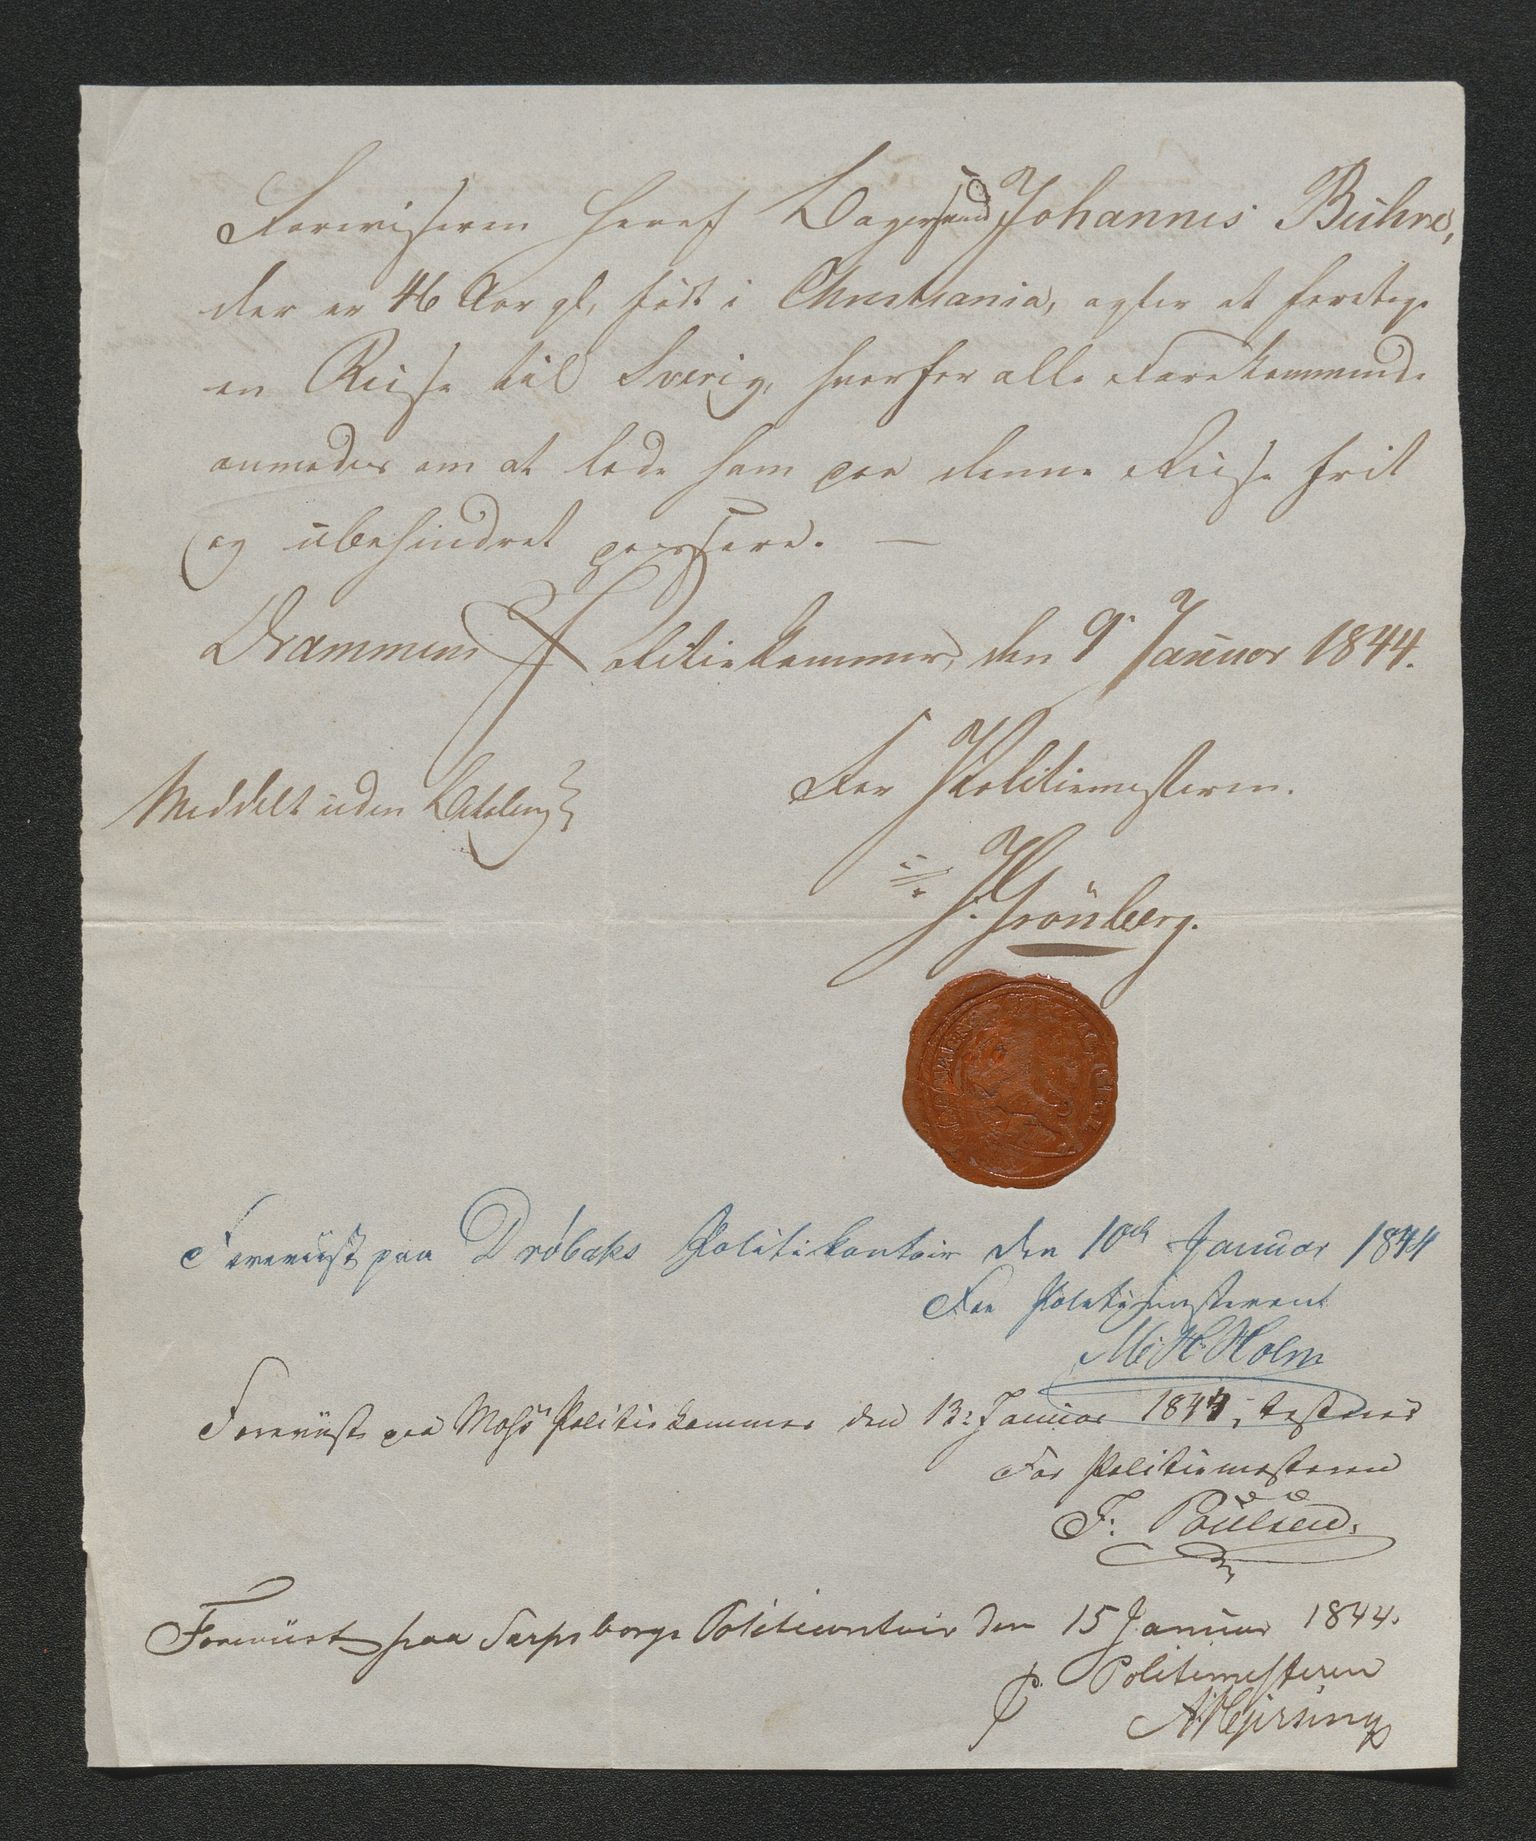 Foreviseren heraf Bagersvend Johannes Buhre,
der er 46 Aar gl, født i Christiania, agter at foretage
en Reise til Sverig, hvorfor alle Forekommende
anmodes om at lade ham paa denne Reise frit
og ubehindret passere. —
Drammens Politiekammer, den 9 Januar 1844.
For Politiemesteren.
Meddelt uden Betaling
Grönberg.
Foreviist paa Drøbaks Politikontoir den 10de Januar 1844
For Politimesteren
M. H. Holm
Foreviist paa Moss Politiekammer den 13 Januar 1844, testerer
For Politiemesteren
F. Poülsen
Foreviist paa Sarpsborgs Politicontoir den 15 Januar 1844.
Politimesteren